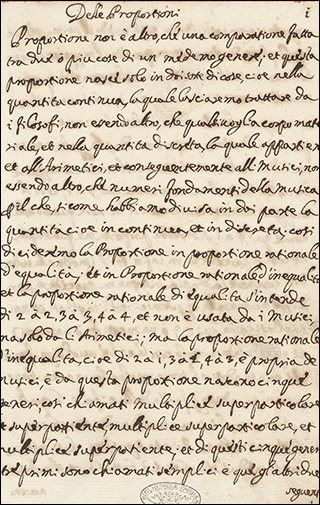 Delle Proportioni
i
Proportione non è altro, che una comparatione fatta
tra due ò più cose di un medemo genere; et questa
proportione nasce solo in doi sorte di cose, cioe nella
quantita continua, la quale lasciaremo trattare da
i filosofi, non essendo altro, che qualsivogla corpo mate
riale, et nella quantita discreta, la quale appartien
et all'Arimetici, et conseguentemente alli Musici, non
essendo altro, che numeri fondamenti della Musica
il che, si come habbiamo divisa in doi parte la
quantita cioe in continua, et in discreta, così
divideremo la Proportione in proportione rationale
d'equalita, et in Proportione rationale d'inequalita
et la proportione rationale di equalita s'intende
di 2 à 2, 3 à 3, 4 à 4, et non è usata da i Musici,
ma solo da l'Arimetici; ma la proportione rationale
d'inequalita, cioe di 2 à i, 3 à 2, 4 à 3, è propria de
musici, è da questa proportione nascono cinque
generi, così chiamati Multiplice superparticolare
et superpartiente multiplice superparticolare, et
multiplice superpartiente, et di questi cinque generi
tre primi sono chiamati semplici è que gl'altri due
seguenti